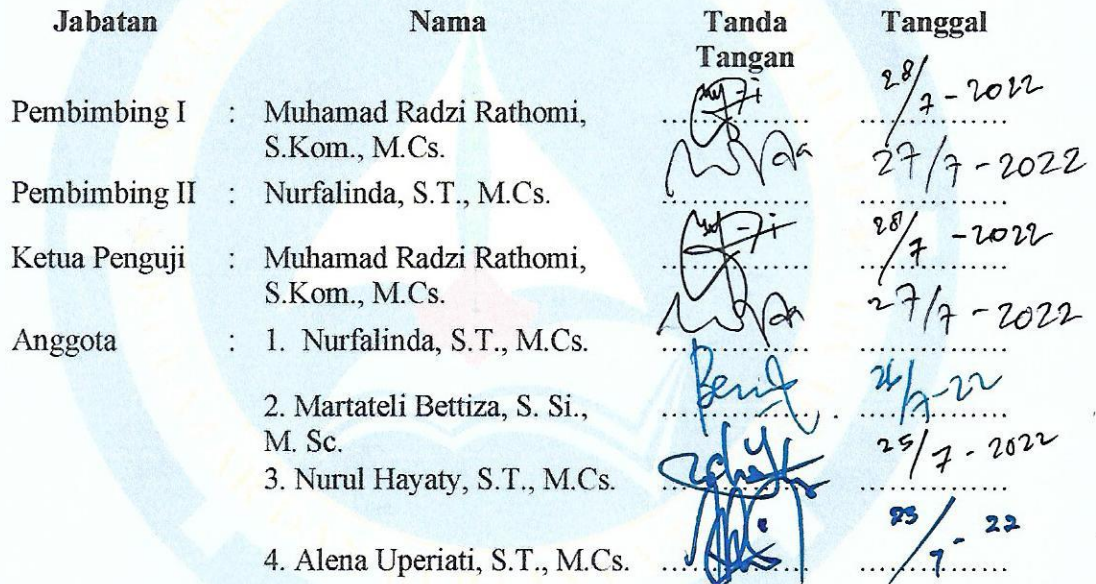 Jabatan Nama Tanda Tanggal
Tangan
28/7 - 2022
Pembimbing I : Muhamad Radzi Rathomi, .................. ..................
S.Kom., M.Cs. 27/7 - 2022
Pembimbing II : Nurfalinda, S.T., M.Cs. .................. ..................
28/7 - 2022
Ketua Penguji : Muhamad Radzi Rathomi, .................. ..................
S.Kom., M.Cs. 27/7 - 2022
Anggota : 1. Nurfalinda, S.T., M.Cs. .................. ..................
/7-22
2. Martateli Bettiza, S. Si., .................. ..................
M. Sc. 25/7 - 2022
3. Nurul Hayaty, S.T., M.Cs. .................. ..................
/7 - 22
4. Alena Uperiati, S.T., M.Cs. .................. ..................